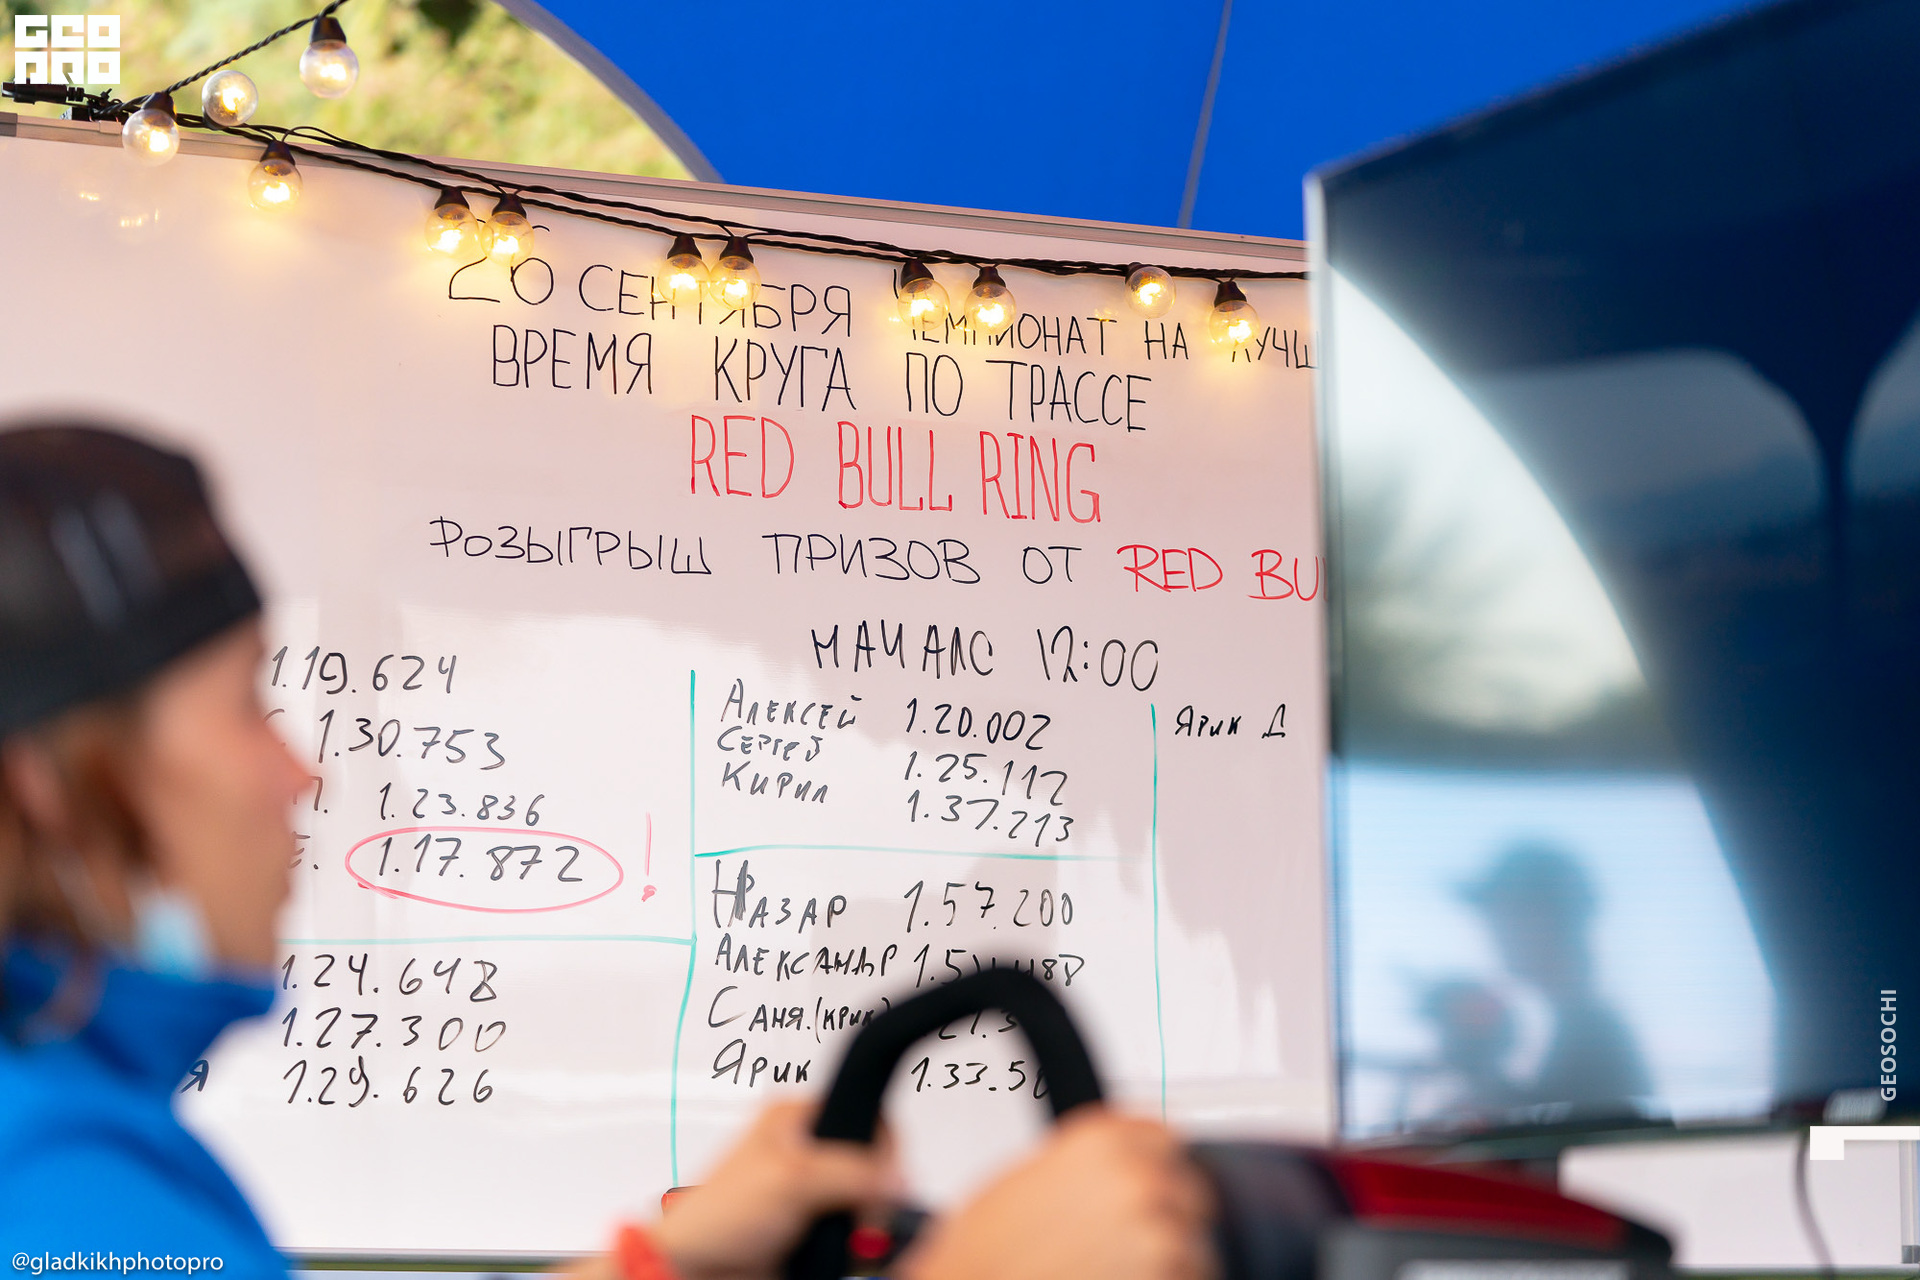 GEO
PRO
26 СЕНТЯБРЯ ЧЕМПИОНАТ НА ЛУЧШ
ВРЕМЯ КРУГА ПО ТРАССЕ
RED BULL RING
РОЗЫГРЫШ ПРИЗОВ ОТ RED BU
НАЧАЛО 12:00
1.19.624
1.30.753
П. 1.23.836
Е. 1.17.872 !
1.24.648
1.27.300
Я 1.29.626
АЛЕКСЕЙ 1.20.002
СЕРГЕЙ 1.25.112
КИРИЛ 1.37.213
НАЗАР 1.57.200
АЛЕКСАНДР
САНЯ.(КРИК)
ЯРИК 1.33.5
ЯРИК Д
GEOSOCHI
@gladkikhphotopro